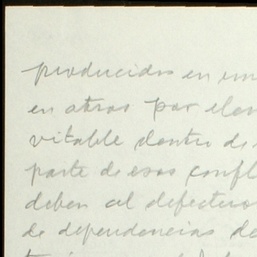 producidos en un
en otros por elem
vitable dentro de
parte de esos confl
deben al defectuoso
de dependencias de